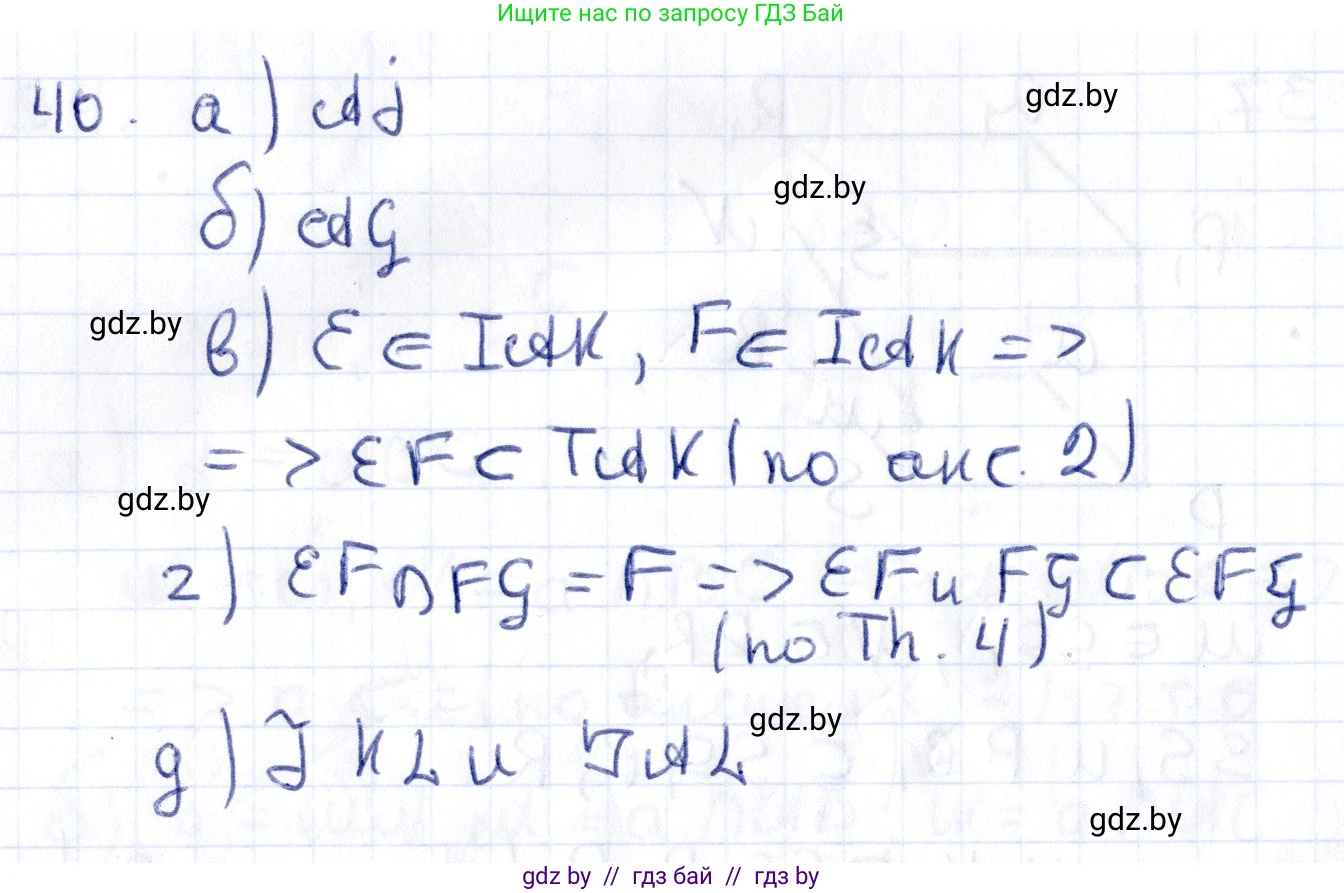 Ищите нас по запросу ГДЗ Бай
40. а) AJ
gdz.by
gdz.by
б) AG
gdz.by
в) E ∈ IAK, F ∈ IAK =>
=> EF ⊂ IAK (по акс. 2)
gdz.by
г) EF ∩ FG = F => EF и FG ⊂ EFG
(по Th. 4).
д) JKL и JAL
gdz.by
gdz.by
gdz by // гдз бай // гдз by